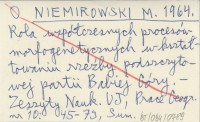 NIEMIROWSKI M. 1964.
Rola współczesnych procesów
morfogenetycznych w kształ-
towaniu rzeźby podszczyto-
wej partii Babiej Góry, -
Zeszyty Nauk. UJ, Prace Geogr.
nr 10: 45-73, Sum.